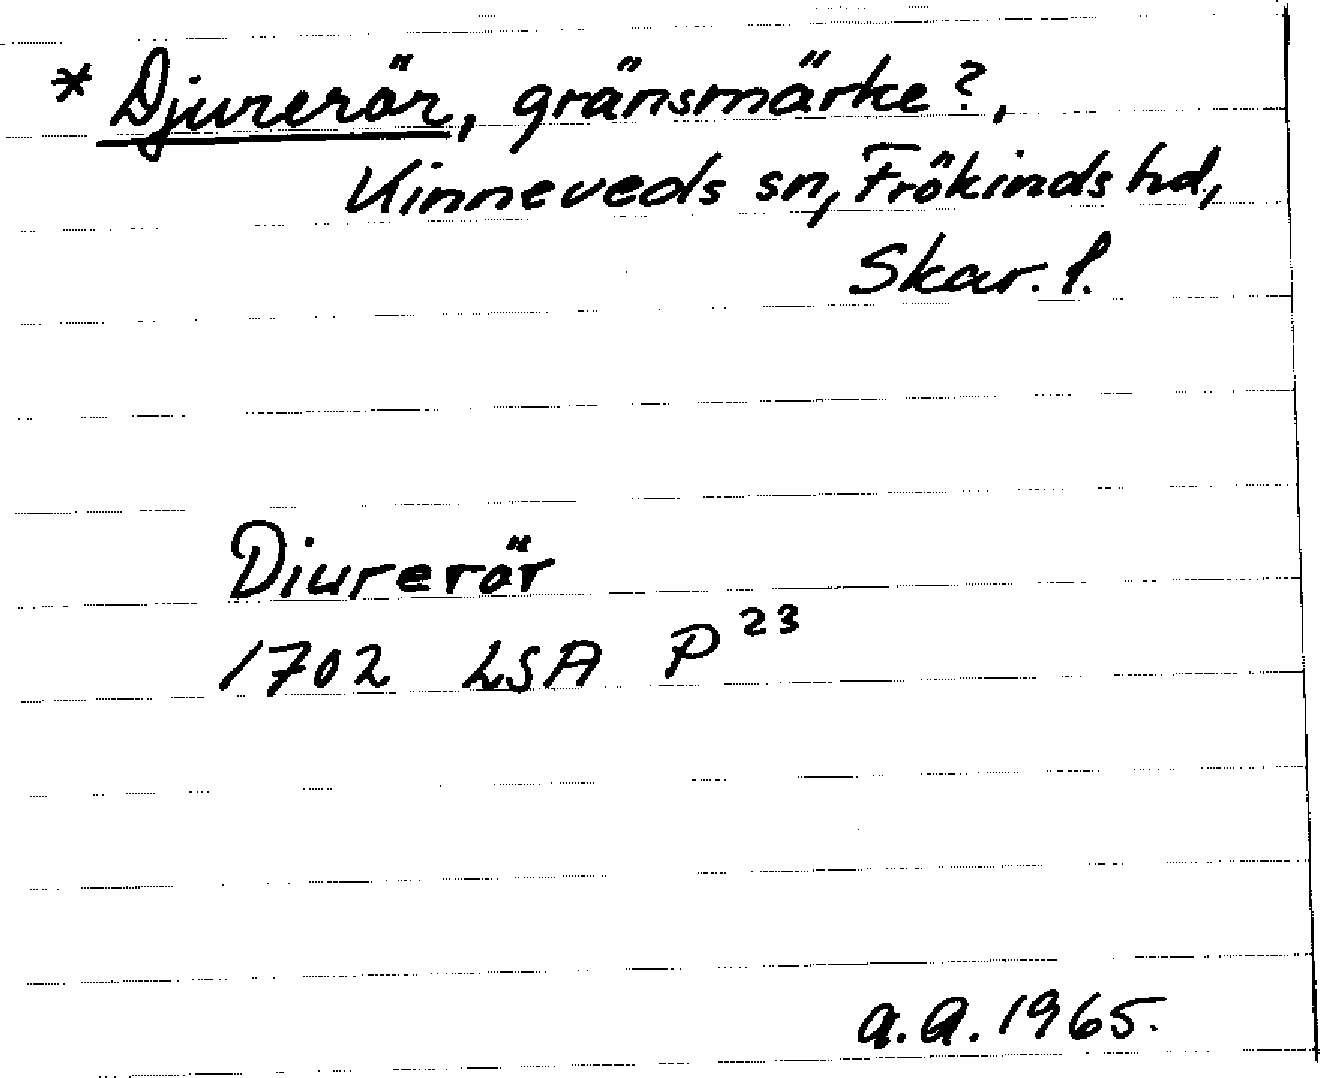 * Djurerör, gränsmärke?,
Kinneveds sn, Frökinds hd,
Skar. l.
Diurerör
1702 LSA P 23
a.a. 1965.